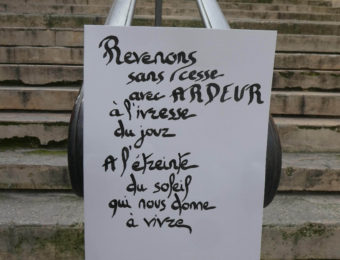 Revenons
sans cesse
avec ARDEUR
à l'ivresse
du jour
A l'étreinte
du soleil
qui nous donne
à vivre